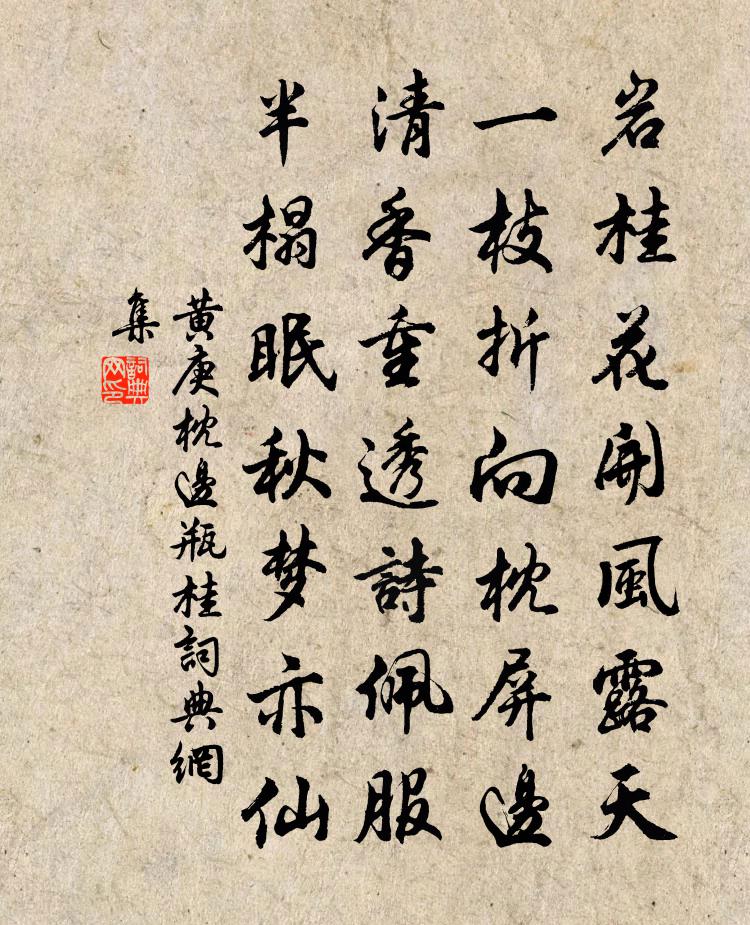 岩桂花開風露天
一枝折向枕屏邊
清香重透詩佩服
半榻眠秋梦亦仙
黄庚枕邊瓶桂詞典網
集
詞典网印